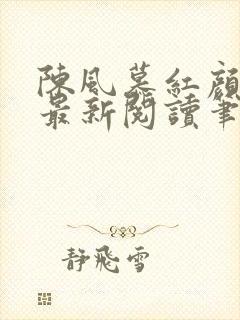 陳風慕紅顏
最新閱讀筆
靜飛雪